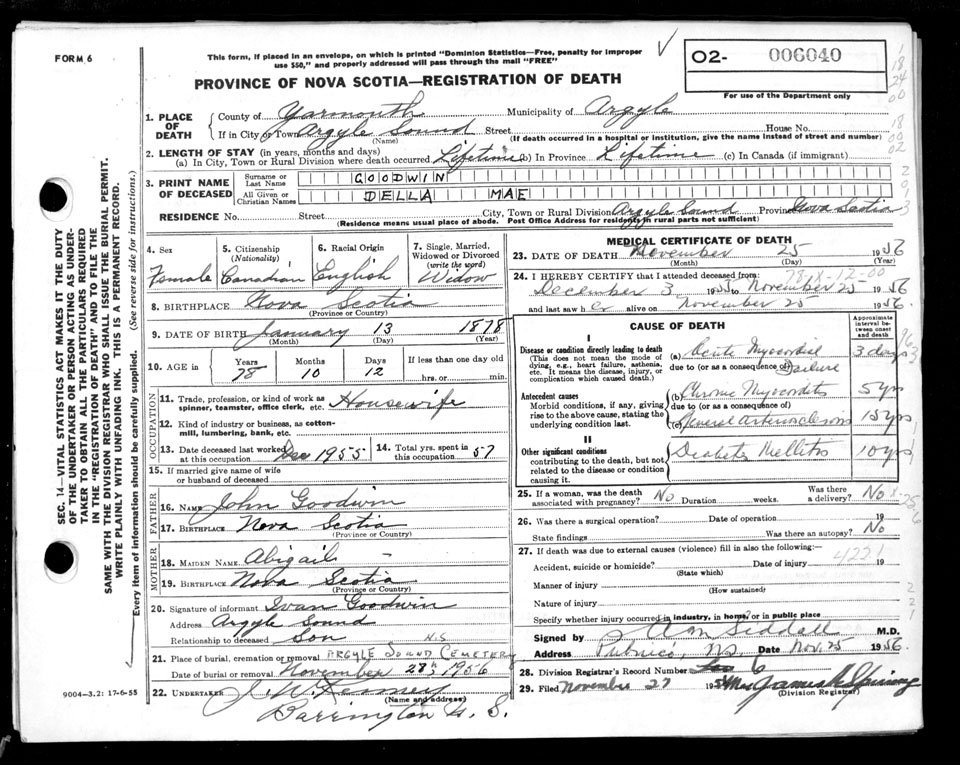 FORM 6
This form, if placed in an envelope, on which is printed "Dominion Statistics—Free, penalty for improper
use $50," and properly addressed will pass through the mail "FREE"
02- 006040
For use of the Department only
PROVINCE OF NOVA SCOTIA—REGISTRATION OF DEATH
1. PLACE OF DEATH
County of Yarmouth Municipality of Argyle
If in City or Town Argyle Sound Street House No.
(Name) (If death occurred in a hospital or institution, give the name instead of street and number)
2. LENGTH OF STAY (in years, months and days)
(a) In City, Town or Rural Division where death occurred Lifetime (b) In Province Lifetime (c) In Canada (if immigrant)
3. PRINT NAME OF DECEASED
Surname or Last Name GOODWIN
All Given or Christian Names DELLA MAE
RESIDENCE No. Street City, Town or Rural Division Argyle Sound Province Nova Scotia
(Residence means usual place of abode. Post Office Address for residents in rural parts not sufficient)
4. Sex
Female
5. Citizenship
(Nationality)
Canadian
6. Racial Origin
English
7. Single, Married,
Widowed or Divorced
(write the word)
Widow
8. BIRTHPLACE Nova Scotia
(Province or Country)
9. DATE OF BIRTH January 13 1878
(Month) (Day) (Year)
10. AGE in
Years Months Days If less than one day old
78 10 12 hrs. or min.
OCCUPATION
11. Trade, profession, or kind of work as
spinner, teamster, office clerk, etc. Housewife
12. Kind of industry or business, as cotton-
mill, lumbering, bank, etc.
13. Date deceased last worked
at this occupation Dec 1955
14. Total yrs. spent in
this occupation 57
15. If married give name of wife
or husband of deceased
FATHER
16. NAME John Goodwin
17. BIRTHPLACE Nova Scotia
(Province or Country)
MOTHER
18. MAIDEN NAME Abigail -
19. BIRTHPLACE Nova Scotia
(Province or Country)
20. Signature of informant Ivan Goodwin
Address Argyle Sound
N.S
Relationship to deceased Son
21. Place of burial, cremation or removal ARGYLE SOUND CEMETERY
Date of burial or removal November 28, 1956
22. UNDERTAKER
(Name and address)
Barrington N. S.
MEDICAL CERTIFICATE OF DEATH
23. DATE OF DEATH November 25 1956
(Month) (Day)
7878-12-00
24. I HEREBY CERTIFY that I attended deceased from:
December 3 1955 to November 25 1956
and last saw her alive on November 25 1956.
CAUSE OF DEATH
Approximate interval between onset and death
I
Disease or condition directly leading to death
(This does not mean the mode of
dying, e.g., heart failure, asthenia,
etc. It means the disease, injury, or
complication which caused death.)
(a) Acute Myocardial 3 days
due to (or as a consequence of) Failure
Antecedent causes
Morbid conditions, if any, giving
rise to the above cause, stating the
underlying condition last.
(b) Chronic Myocarditis 5 yrs
due to (or as a consequence of)
(c) General arteriosclerosis 15 yrs
II
Other significant conditions
contributing to the death, but not
related to the disease or condition
causing it.
Diabetes Mellitus 10 yrs
25. If a woman, was the death
associated with pregnancy? No Duration weeks. Was there
a delivery? No
26. Was there a surgical operation? Date of operation 19
State findings Was there an autopsy? No
27. If death was due to external causes (violence) fill in also the following:—
4221
Accident, suicide or homicide? Date of injury 19
(State which)
Manner of injury
(How sustained)
Nature of injury
Specify whether injury occurred in industry, in home, or in public place
Signed by Siddall M.D.
Address Pubnico, N.S. Date Nov. 25 1956.
28. Division Registrar's Record Number 6
29. Filed November 27 195
(Division Registrar)
9004—3.2: 17-6-55
SEC. 14—VITAL STATISTICS ACT MAKES IT THE DUTY
OF THE UNDERTAKER OR PERSON ACTING AS UNDER-
TAKER TO OBTAIN ALL THE PARTICULARS REQUIRED
IN THE "REGISTRATION OF DEATH" AND TO FILE THE
SAME WITH THE DIVISION REGISTRAR WHO SHALL ISSUE THE BURIAL PERMIT.
WRITE PLAINLY WITH UNFADING INK. THIS IS A PERMANENT RECORD.
Every item of information should be carefully supplied. (See reverse side for instructions.)